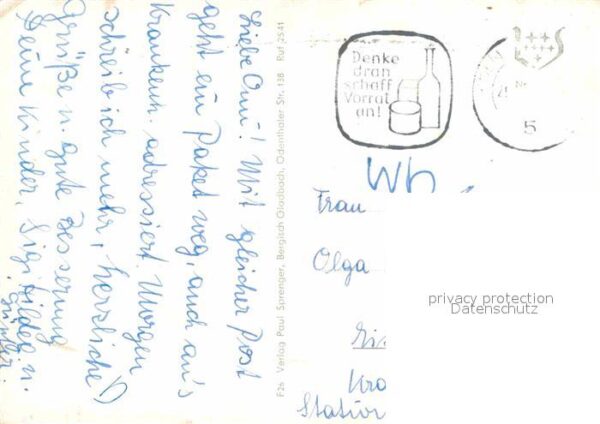 Liebe Omi! Mit gleicher Post
geht ein Paket weg, auch an's
Krankenh. adressiert. Morgen
schreib ich mehr, herzliche
Grüße u. gute Besserung
Deine Kinder, Sigi, Hildeg. u.
Günter.
F26 Verlag Paul Sprenger, Bergisch Gladbach, Odenthaler Str. 138 Ruf 2541
Denke
dran
schaff
Vorrat
an!
5
Wh
Frau
Olga
privacy protection
Datenschutz
Kra
Station